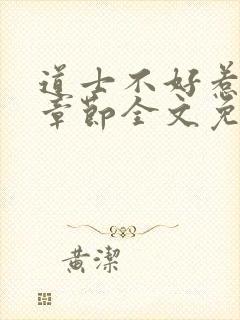 道士不好惹
章節全文免
黄潔